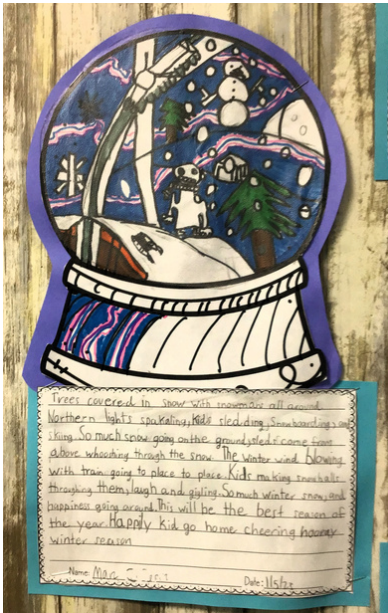 Trees covered in snow with snowman all around
Northern lights spakaling, Kids sledding, Snowboardings and
skiing. So much snow going on the ground, sleds come from
above whooshing through the snow. The winter wind blowing
with train going to place to place. Kids making snowballs
throughing them, laugh and gigling. So much winter snow, and
happiness going around. This will be the best season of
the year. Happily kid go home cheering hooray
winter season
Name:
Date: 1/5/23